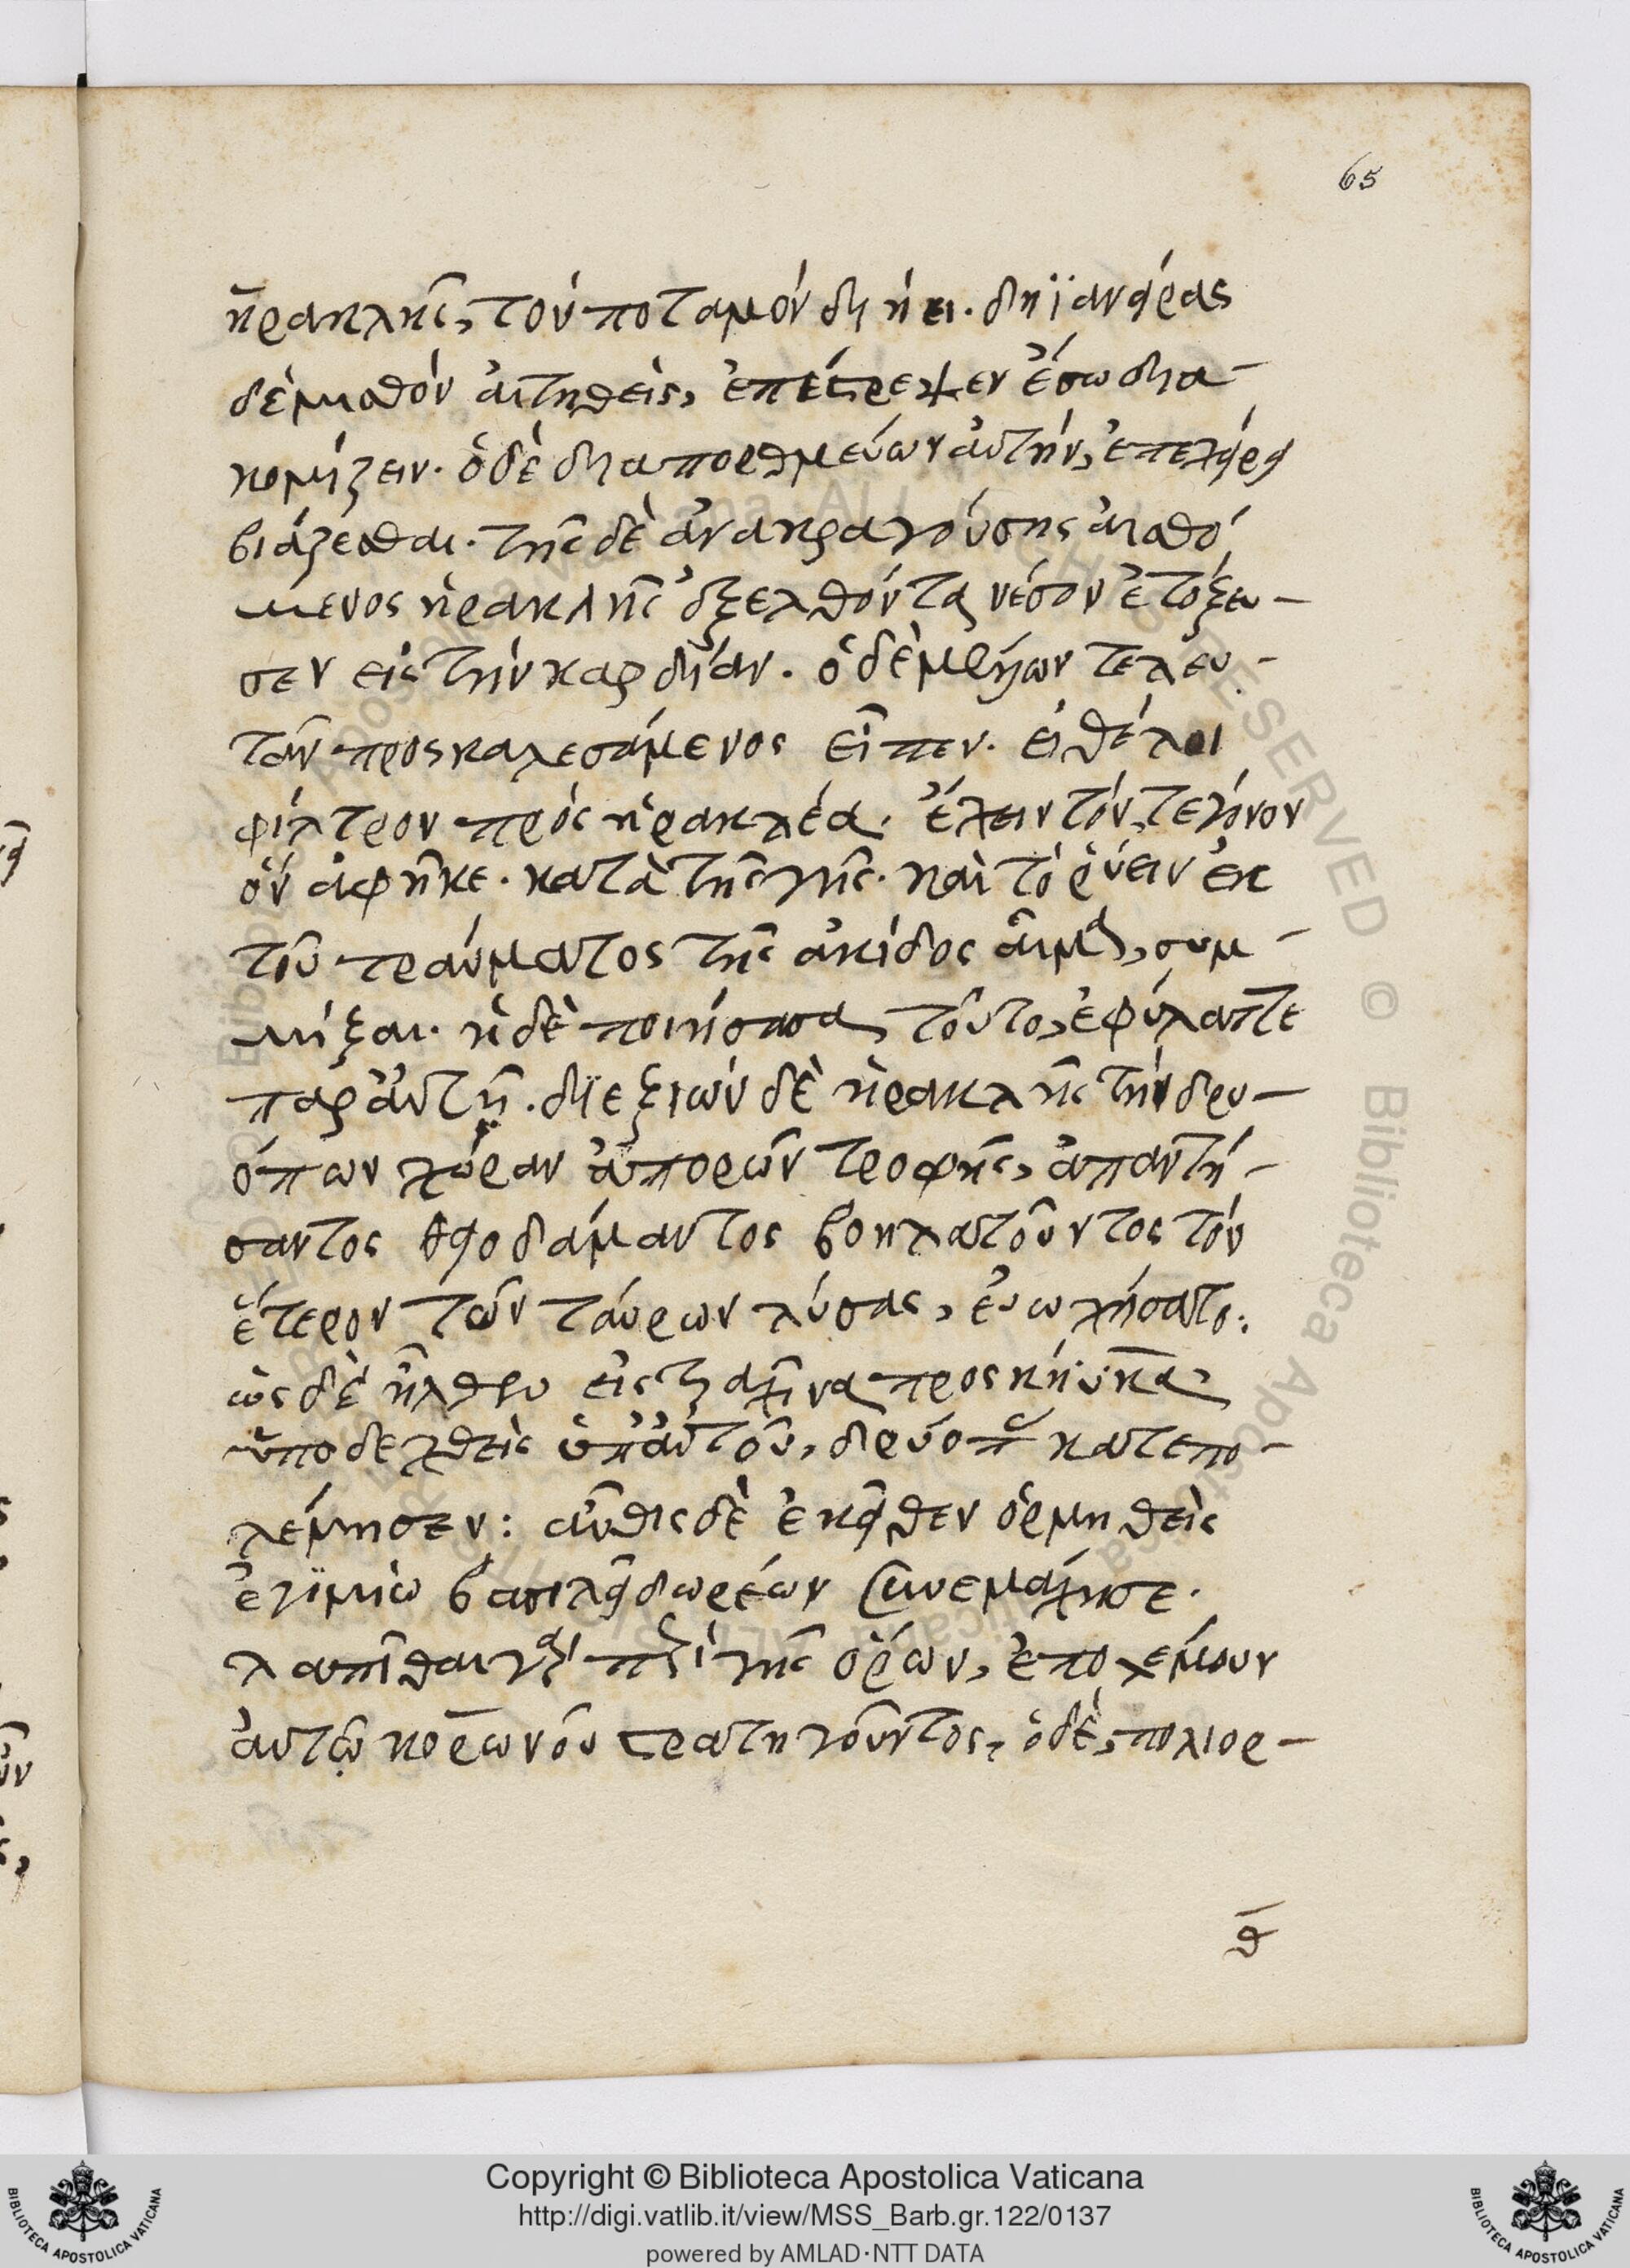 65
ἡρακλῆς, τὸν ποταμὸν διήει. δηϊανείρας
δὲ μισθὸν αἰτηθεὶς, ἐπέτρεψεν ἔσω δια-
κομίζειν. ὁ δὲ διαπορθμεύων αὐτὴν, ἐπεχείρει
βιάζεσθαι. τῆς δὲ ἀνακραγούσης αἰσθό
μενος ἡρακλῆς ἐξελθόντα νέσον ἐτόξευ-
σεν εἰς τὴν καρδίαν. ὁ δὲ μέλλων τελευ-
τᾶν προσκαλεσάμενος εἶπεν. εἰ θέλοι
φίλτρον πρὸς ἡρακλέα. ἔχειν τόν, τε γόνον
ὃν ἀφῆκε. κατὰ τῆς γῆς. καὶ τὸ ῥύειν ἐκ
τοῦ τραύματος τῆς ἀκίδος αἷμα, συμ-
μίξαι. ἡ δὲ ποιήσασα τοῦτο, ἐφύλαττε
παρ' αὐτῇ. διεξιὼν δὲ ἡρακλῆς τὴν δρυ-
όπων χώραν ἀπορῶν τροφῆς, ἀπαντή-
σαντος θειοδάμαντος βοηλατοῦντος τὸν
ἕτερον τῶν ταύρων λύσας, εὐωχήσατο:
ὡς δὲ ἦλθεν εἰς τραχῖνα πρὸς κήϋκα
ὑποδεχθεὶς ὑπ' αὐτοῦ, δρύοπας κατεπο-
λέμησεν: αὖθις δὲ ἐκεῖθεν ὁρμηθεὶς
ἐγιμιῶ βασιλεῖ δωριέων συνεμάχησε.
λαπίθαι γὰρ περὶ γῆς ὅρων, ἐπολέμουν
αὐτῷ κορωνοῦ στρατηγοῦντος, ὁ δὲ, πολιορ-
θ
Copyright © Biblioteca Apostolica Vaticana
http://digi.vatlib.it/view/MSS_Barb.gr.122/0137
powered by AMLAD·NTT DATA